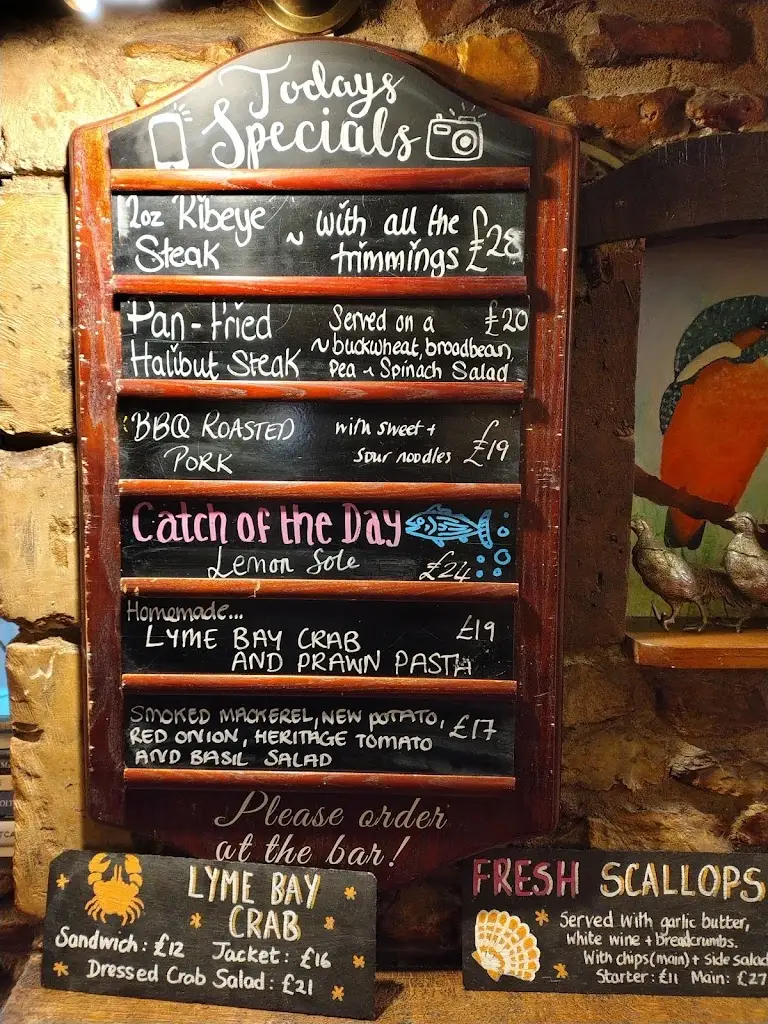 Todays
Specials
12oz Ribeye
Steak ~ with all the
trimmings £28
Pan-Fried
Halibut Steak ~ Served on a
buckwheat, broadbean,
Pea + Spinach Salad £20
BBQ ROASTED
PORK with sweet +
sour noodles £19
Catch of the Day
Lemon Sole £24
Homemade...
LYME BAY CRAB £19
AND PRAWN PASTA
SMOKED MACKEREL, NEW POTATO,
RED ONION, HERITAGE TOMATO £17
AND BASIL SALAD
Please order
at the bar!
LYME BAY
CRAB
Sandwich: £12 Jacket: £16
Dressed Crab Salad: £21
FRESH SCALLOPS
Served with garlic butter,
white wine + breadcrumbs.
With chips(main) + side salad
Starter: £11 Main: £27